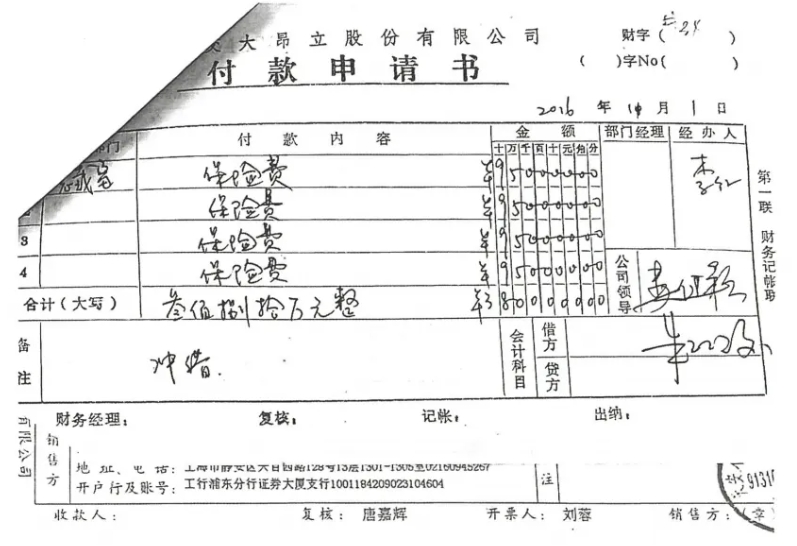 大昂立股份有限公司 财字(
付款申请书 ( )字No( )
2016年 月1日
部门 付款内容 金额 部门经理 经办人
十万千百十元角分
保险费 ¥9500000
保险费 ¥9500000
3 保险费 ¥9500000
4 保险费 ¥9500000
公司领导
合计(大写) 叁佰捌拾万元整 ¥38000000
备注 冲借. 会计科目 借方
贷方
第一联 财务记帐联
财务经理: 复核: 记帐: 出纳:
有限公司
销售方
地址、电话: 上海市静安区大自西路128号13层1301-1305室02160945267
开户行及账号: 工行浦东分行证券大厦支行1001184209023104604
注
91310
收款人: 复核: 唐嘉辉 开票人: 刘蓉 销售方:(章)